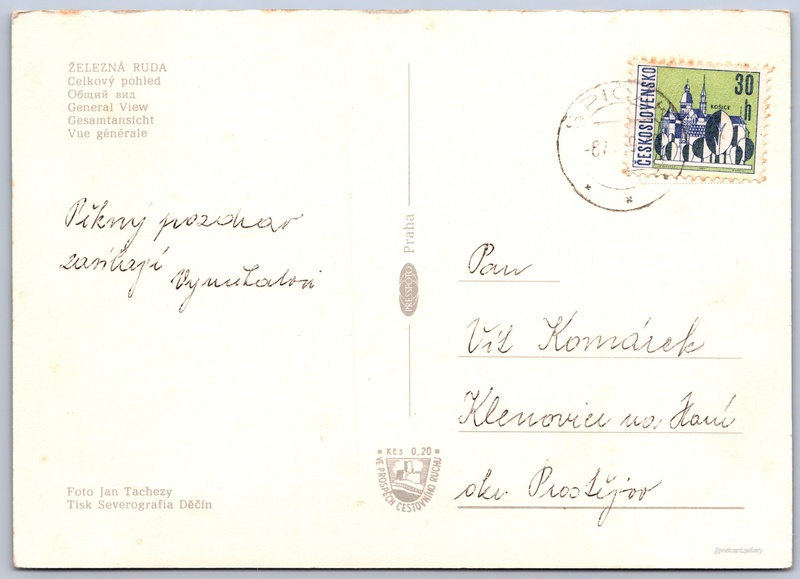 ŽELEZNÁ RUDA
Celkový pohled
Общий вид
General View
Gesamtansicht
Vue générale
Pěkný pozdrav
zasílají
Vymětalovi
Foto Jan Tachezy
Tisk Severografia Děčín
Praha
PRESSFOTO
Kčs 0,20
VE PROSPĚCH CESTOVNÍHO RUCHU
ČESKOSLOVENSKO
30 h
KOŠICE
-8.
Pan
Vít Komárek
Klenovice na Hané
okr Prostějov
postcard.gallery